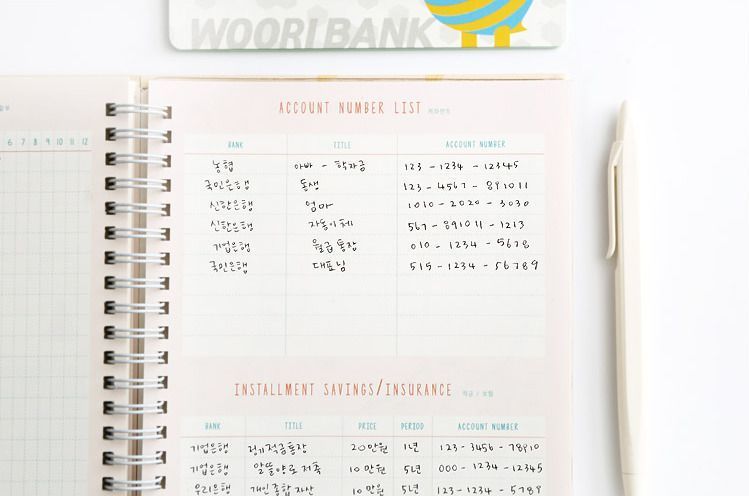 WOORI BANK
ACCOUNT NUMBER LIST 계좌번호
6 7 8 9 10 11 12
BANK TITLE ACCOUNT NUMBER
농협 아빠 - 학자금 123 - 1234 - 12345
국민은행 동생 123 - 4567 - 891011
신한은행 엄마 1010 - 2020 - 3030
신한은행 자동이체 567 - 891011 - 1213
기업은행 월급통장 010 - 1234 - 5678
국민은행 대표님 515 - 1234 - 56789
INSTALLMENT SAVINGS/INSURANCE 적금 / 보험
BANK TITLE PRICE PERIOD ACCOUNT NUMBER
기업은행 정기적금통장 20만원 1년 123 - 3456 - 78910
기업은행 알뜰양로저축 10만원 5년 000 - 1234 - 12345
우리은행 개인종합자산 10만원 5년 123 - 1234 - 5789